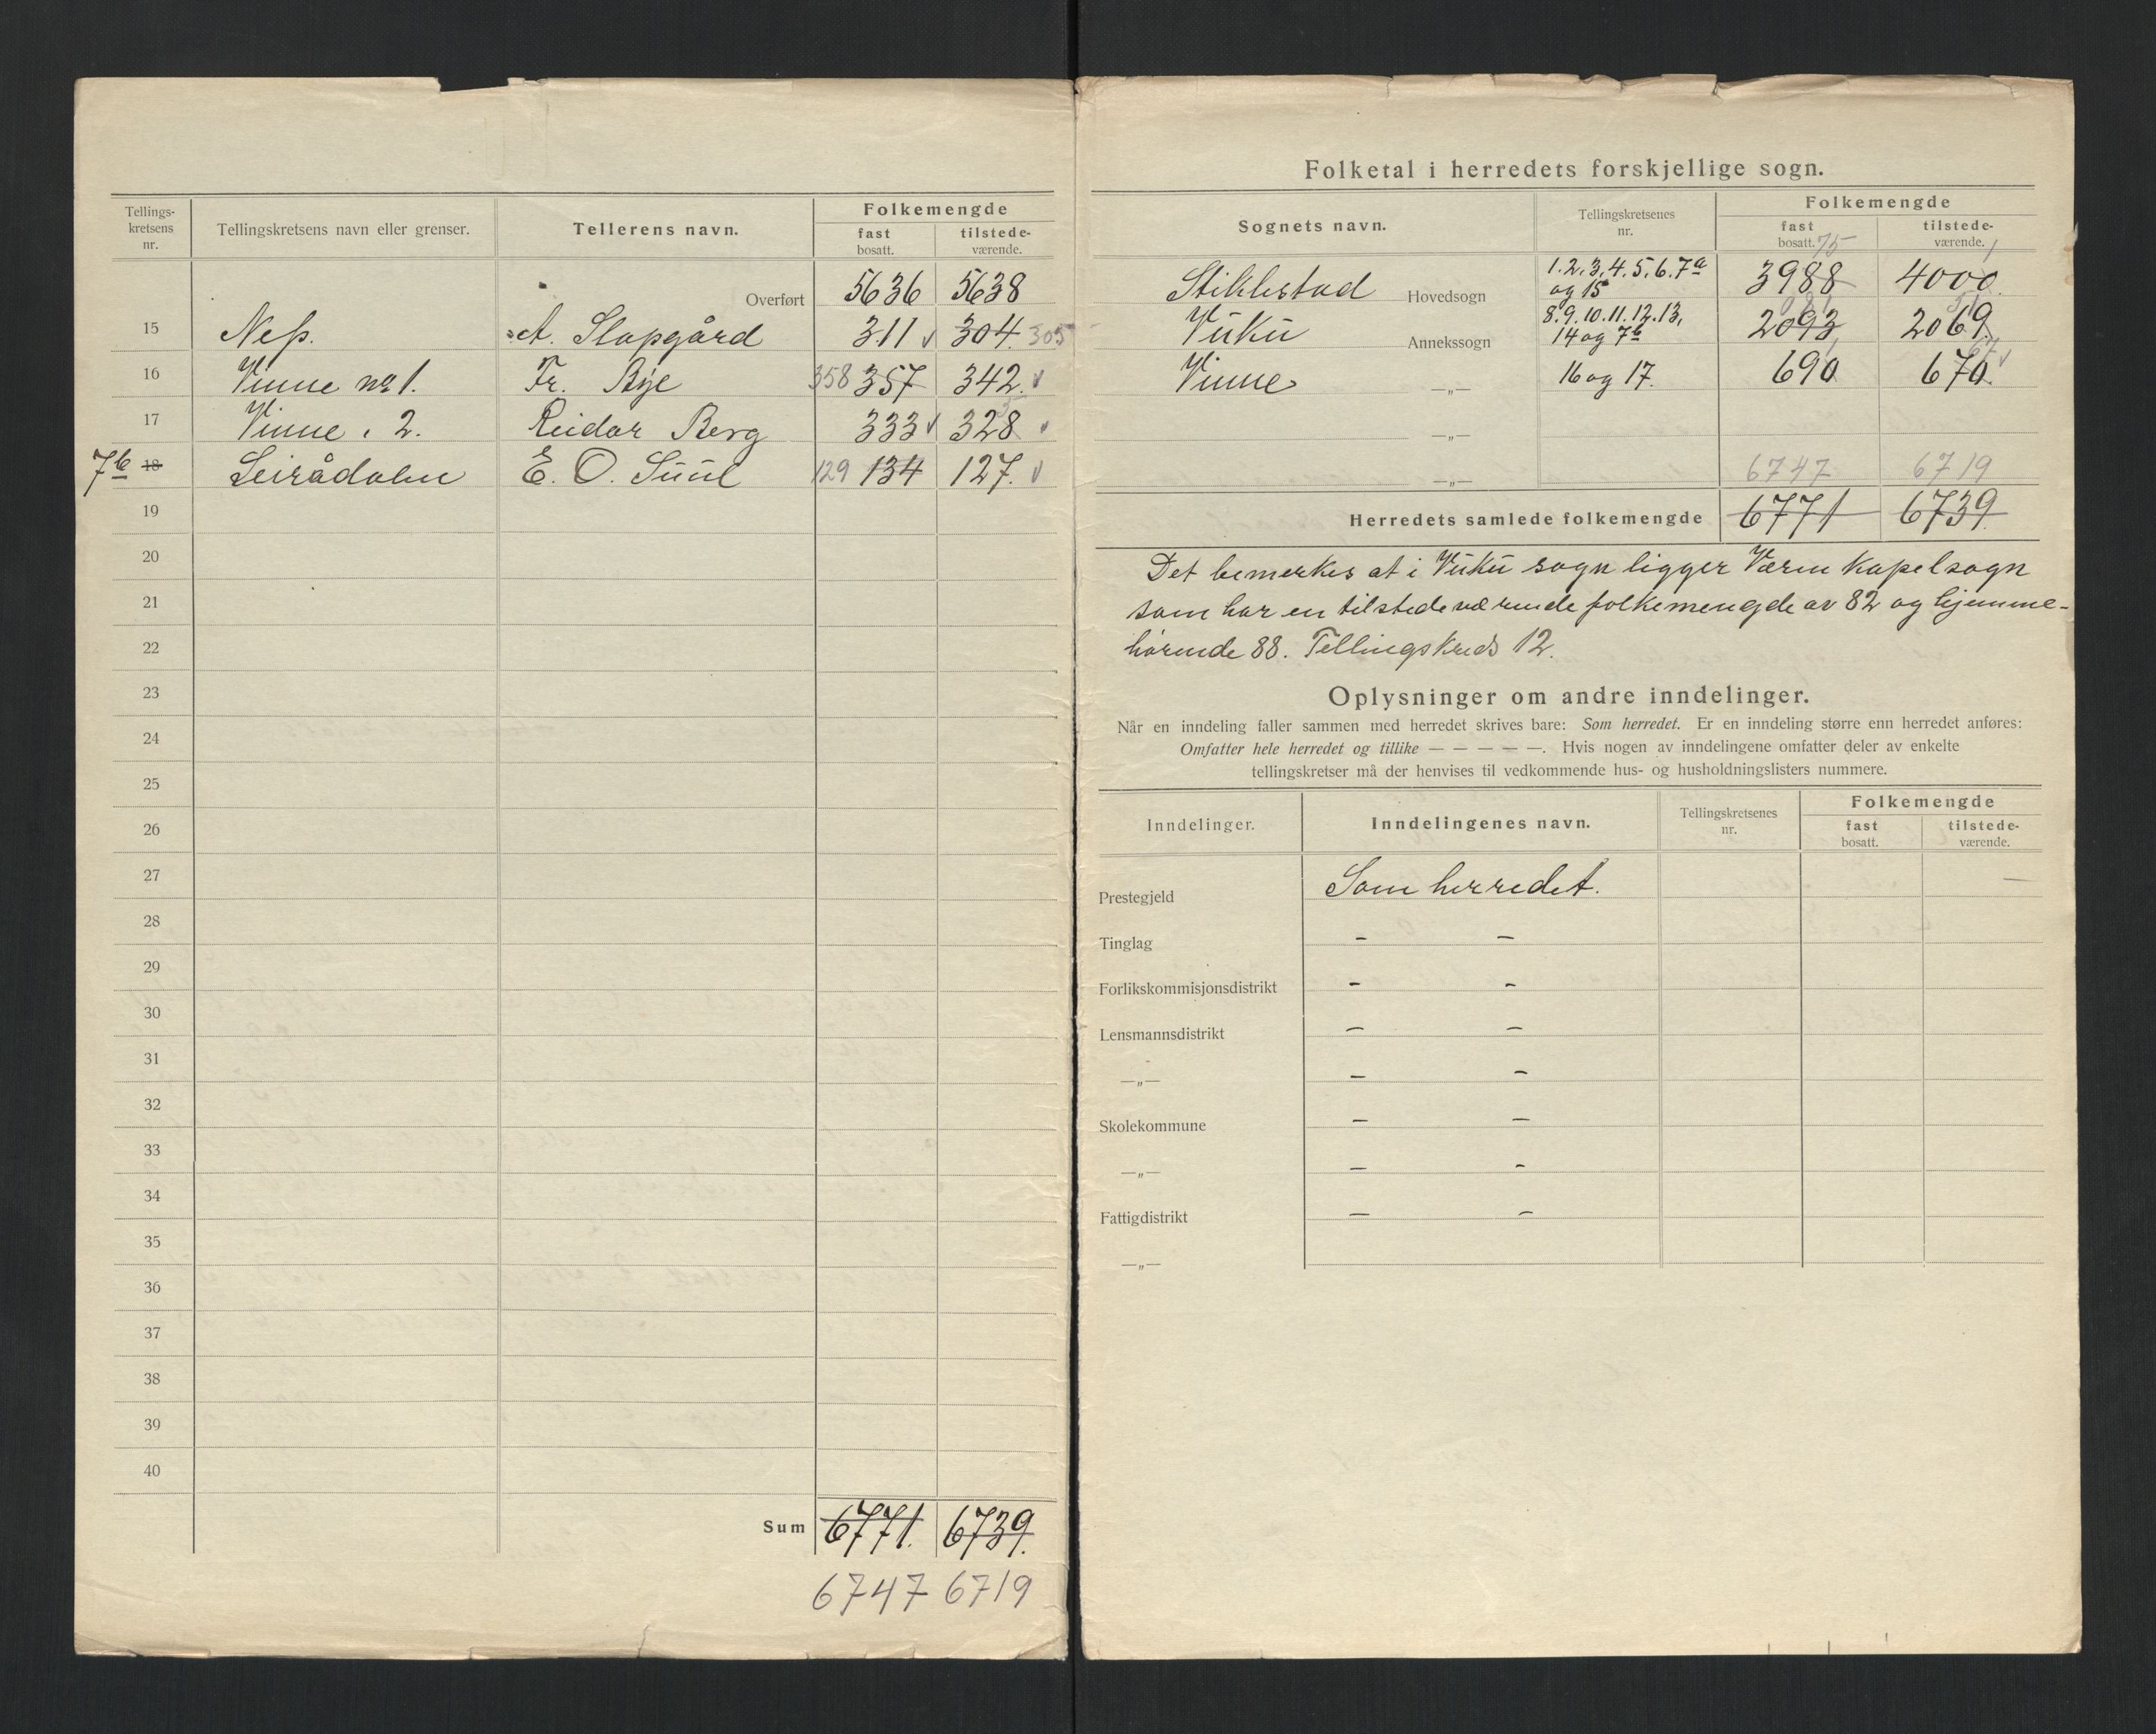 Tellings-
kretsens
nr.
Tellingskretsens navn eller grenser.
Tellerens navn.
Folkemengde
fast
bosatt.
tilstede-
værende.
Overført 5636 5638
15 Ness. A. Slapgård 311 304 305
16 Vinne no 1. Fr. Bye 358 357 342.
17 Vinne " 2. Reidar Berg 333 328
7b 18 Leirådalen E. O. Suul 129 134 127.
19
20
21
22
23
24
25
26
27
28
29
30
31
32
33
34
35
36
37
38
39
40
Sum 6771. 6739.
6747 6719
Folketal i herredets forskjellige sogn.
Sognets navn.
Tellingskretsenes
nr.
Folkemengde
fast
bosatt. 75
tilstede-
værende. 1
Stiklestad Hovedsogn 1.2.3.4.5.6.7a og 15 3988 4000
Vuku Annekssogn 8.9.10.11.12.13, 14 og 7b 2093 2069.
Vinne —„— 16 og 17. 690 670.
—„—
—„— 6747 6719
Herredets samlede folkemengde 6771 6739.
Det bemerkes at i Vuku sogn ligger Væren Kapelsogn
som har en tilstedeværende folkemengde av 82 og hjemme-
hørende 88. Tellingskreds 12.
Oplysninger om andre inndelinger.
Når en inndeling faller sammen med herredet skrives bare: Som herredet. Er en inndeling større enn herredet anføres:
Omfatter hele herredet og tillike — — — — —. Hvis nogen av inndelingene omfatter deler av enkelte
tellingskretser må der henvises til vedkommende hus- og husholdningslisters nummere.
Inndelinger.
Inndelingenes navn.
Tellingskretsenes
nr.
Folkemengde
fast
bosatt.
tilstede-
værende.
Prestegjeld Som herredet. —
Tinglag — —
Forlikskommisjonsdistrikt — —
Lensmannsdistrikt — —
—„— — —
Skolekommune — —
—„— — —
Fattigdistrikt — —
—„—